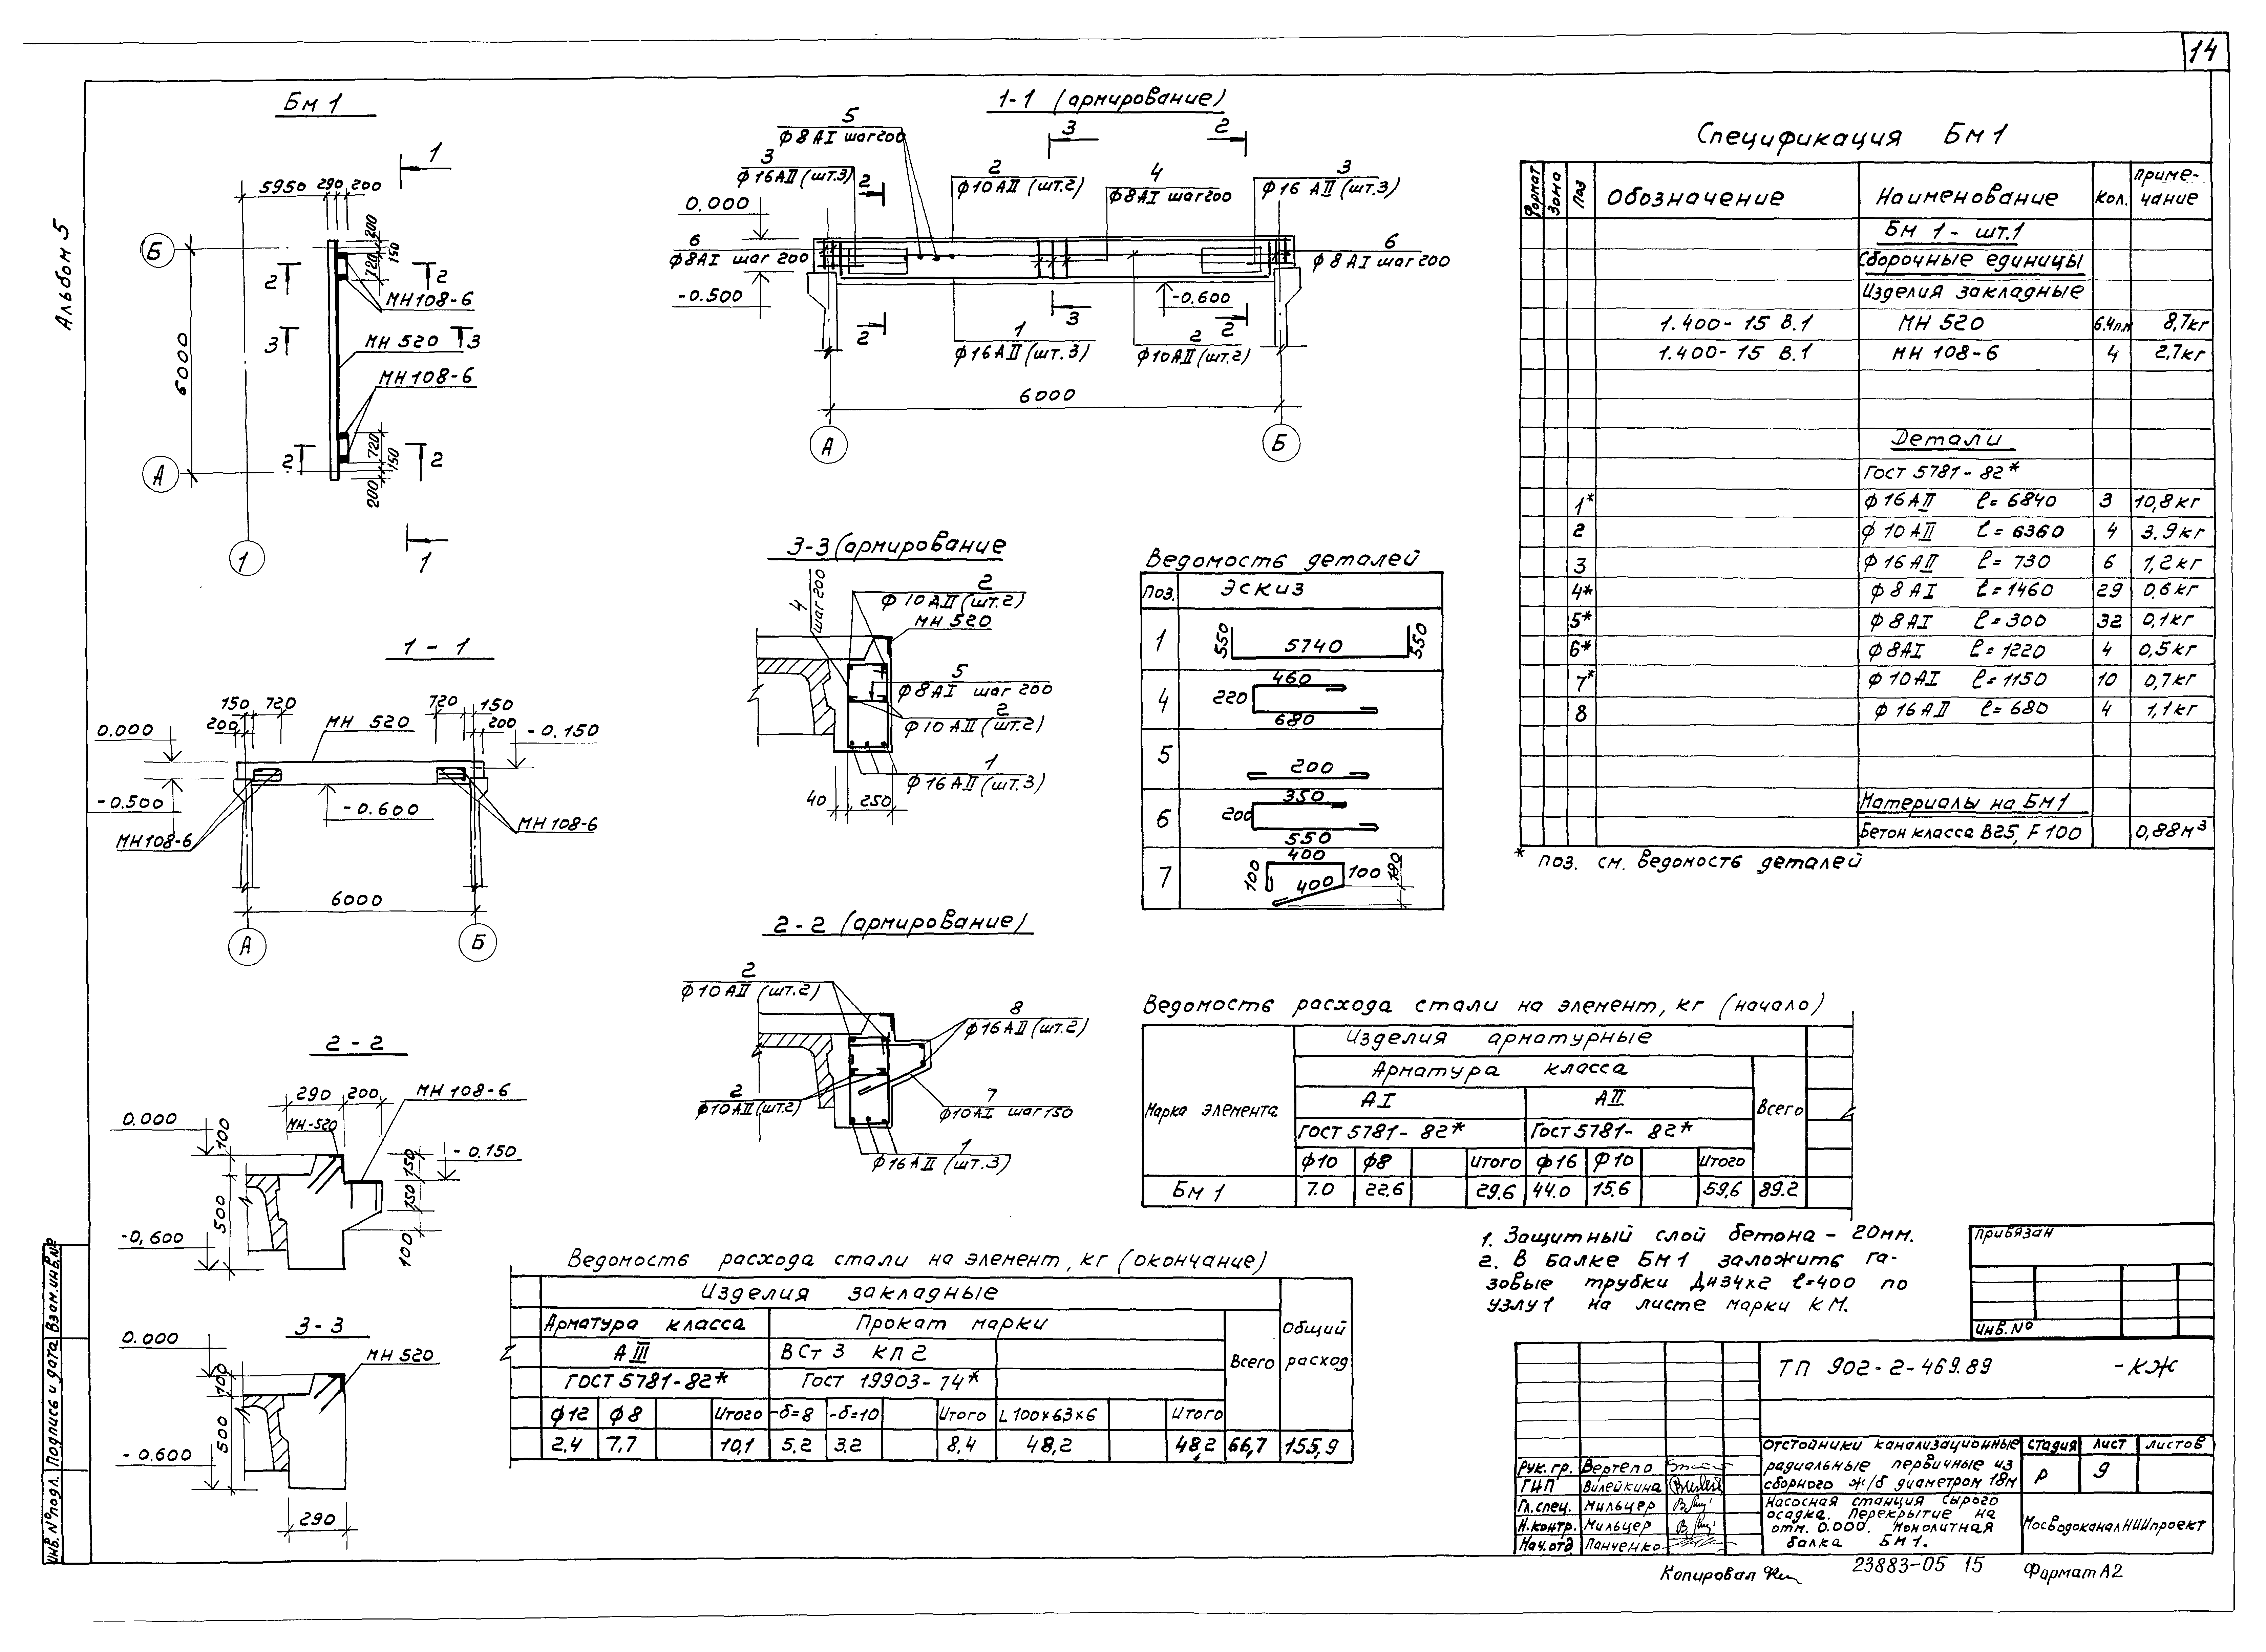 14
Альбом 5
Бм 1
1
5950 290 200
200
150
720
Б
2 2
МН 108-6
6000
3 МН 520 3
МН 108-6
720
150
200
2 2
А
1
1
1-1 (армирование)
5
ф 8 АI шаг 200
3
ф 16 АII (шт.3)
2
3
2
2
ф 10 АII (шт.2)
4
ф 8 АI шаг 200
3
ф 16 АII (шт.3)
0.000
6
ф 8 АI шаг 200
6
ф 8 АI шаг 200
-0.500
-0.600
2
3
2
1
ф 16 АII (шт.3)
2
ф 10 АII (шт.2)
6000
А Б
Спецификация Бм 1
Формат Зона Поз Обозначение Наименование Кол. Приме-чание
Бм 1 - шт.1
Сборочные единицы
Изделия закладные
1.400-15 В.1 МН 520 6.4п.м 8,7кг
1.400-15 В.1 МН 108-6 4 2,7кг
Детали
Гост 5781-82*
1* ф 16 АII ℓ= 6840 3 10,8 кг
2 ф 10 АII ℓ= 6360 4 3.9 кг
3 ф 16 АII ℓ= 730 6 1,2 кг
4* ф 8 АI ℓ= 1460 29 0,6 кг
5* ф 8 АI ℓ= 300 32 0,1 кг
6* ф 8 АI ℓ= 1220 4 0,5 кг
7* ф 10 АI ℓ= 1150 10 0,7 кг
8 ф 16 АII ℓ= 680 4 1,1 кг
Материалы на Бм 1
Бетон класса В25, F 100 0,88 м³
* поз. см. ведомость деталей
3-3 (армирование
4
шаг 200
2
ф 10 АII (шт.2)
МН 520
5
ф 8 АI шаг 200
2
ф 10 АII (шт.2)
1
ф 16 АII (шт.3)
40 250
Ведомость деталей
Поз. Эскиз
1 550 5740 550
4 220 460 680
5 200
6 200 350 550
7 100 400 400 100 180
1 - 1
150 720 720 150
200 МН 520 200
0.000 -0.150
-0.500 -0.600
МН 108-6 МН 108-6
6000
А Б
2-2 (армирование)
2
ф 10 АII (шт.2)
8
ф 16 АII (шт.2)
2
ф 10 АII (шт.2)
7
ф 10 АI шаг 150
1
ф 16 АII (шт.3)
2 - 2
290 200 МН 108-6
0.000 МН-520
100 150 -0.150
500 150
-0,600 100
3 - 3
0.000 МН 520
100
500
-0.600
290
Ведомость расхода стали на элемент, кг (начало)
Марка элемента
Изделия арматурные
Арматура класса
АI АII Всего
ГОСТ 5781-82* ГОСТ 5781-82*
ф10 ф8 Итого ф16 ф10 Итого
Бм 1 7.0 22,6 29,6 44.0 15,6 59,6 89.2
Ведомость расхода стали на элемент, кг (окончание)
Изделия закладные
Арматура класса Прокат марки Общий расход
АIII ВСт 3 КП 2 Всего
ГОСТ 5781-82* Гост 19903-74*
ф12 ф8 Итого -δ=8 -δ=10 Итого L 100х63х6 Итого
2,4 7,7 10,1 5,2 3,2 8,4 48,2 48,2 66,7 155,9
1. Защитный слой бетона - 20мм.
2. В балке Бм 1 заложить га-
зовые трубки Дн34х2 ℓ=400 по
узлу 1 на листе марки КМ.
Привязан
Инв. №
ТП 902-2-469.89 -КЖ
Рук. гр. Вертело
ГИП Вилейкина
Гл. спец. Мильцер
Н.контр. Мильцер
Нач.отд Панченко
Отстойники канализационные
радиальные первичные из
сборного ж/б диаметром 18м
Стадия Лист Листов
р 9
Насосная станция сырого
осадка. Перекрытие на
отм. 0.000. Монолитная
балка Бм 1.
МосводоканалНИИпроект
Копировал 23883-05 15 Формат А2
Инв. № подл. Подпись и дата Взам. инв. №